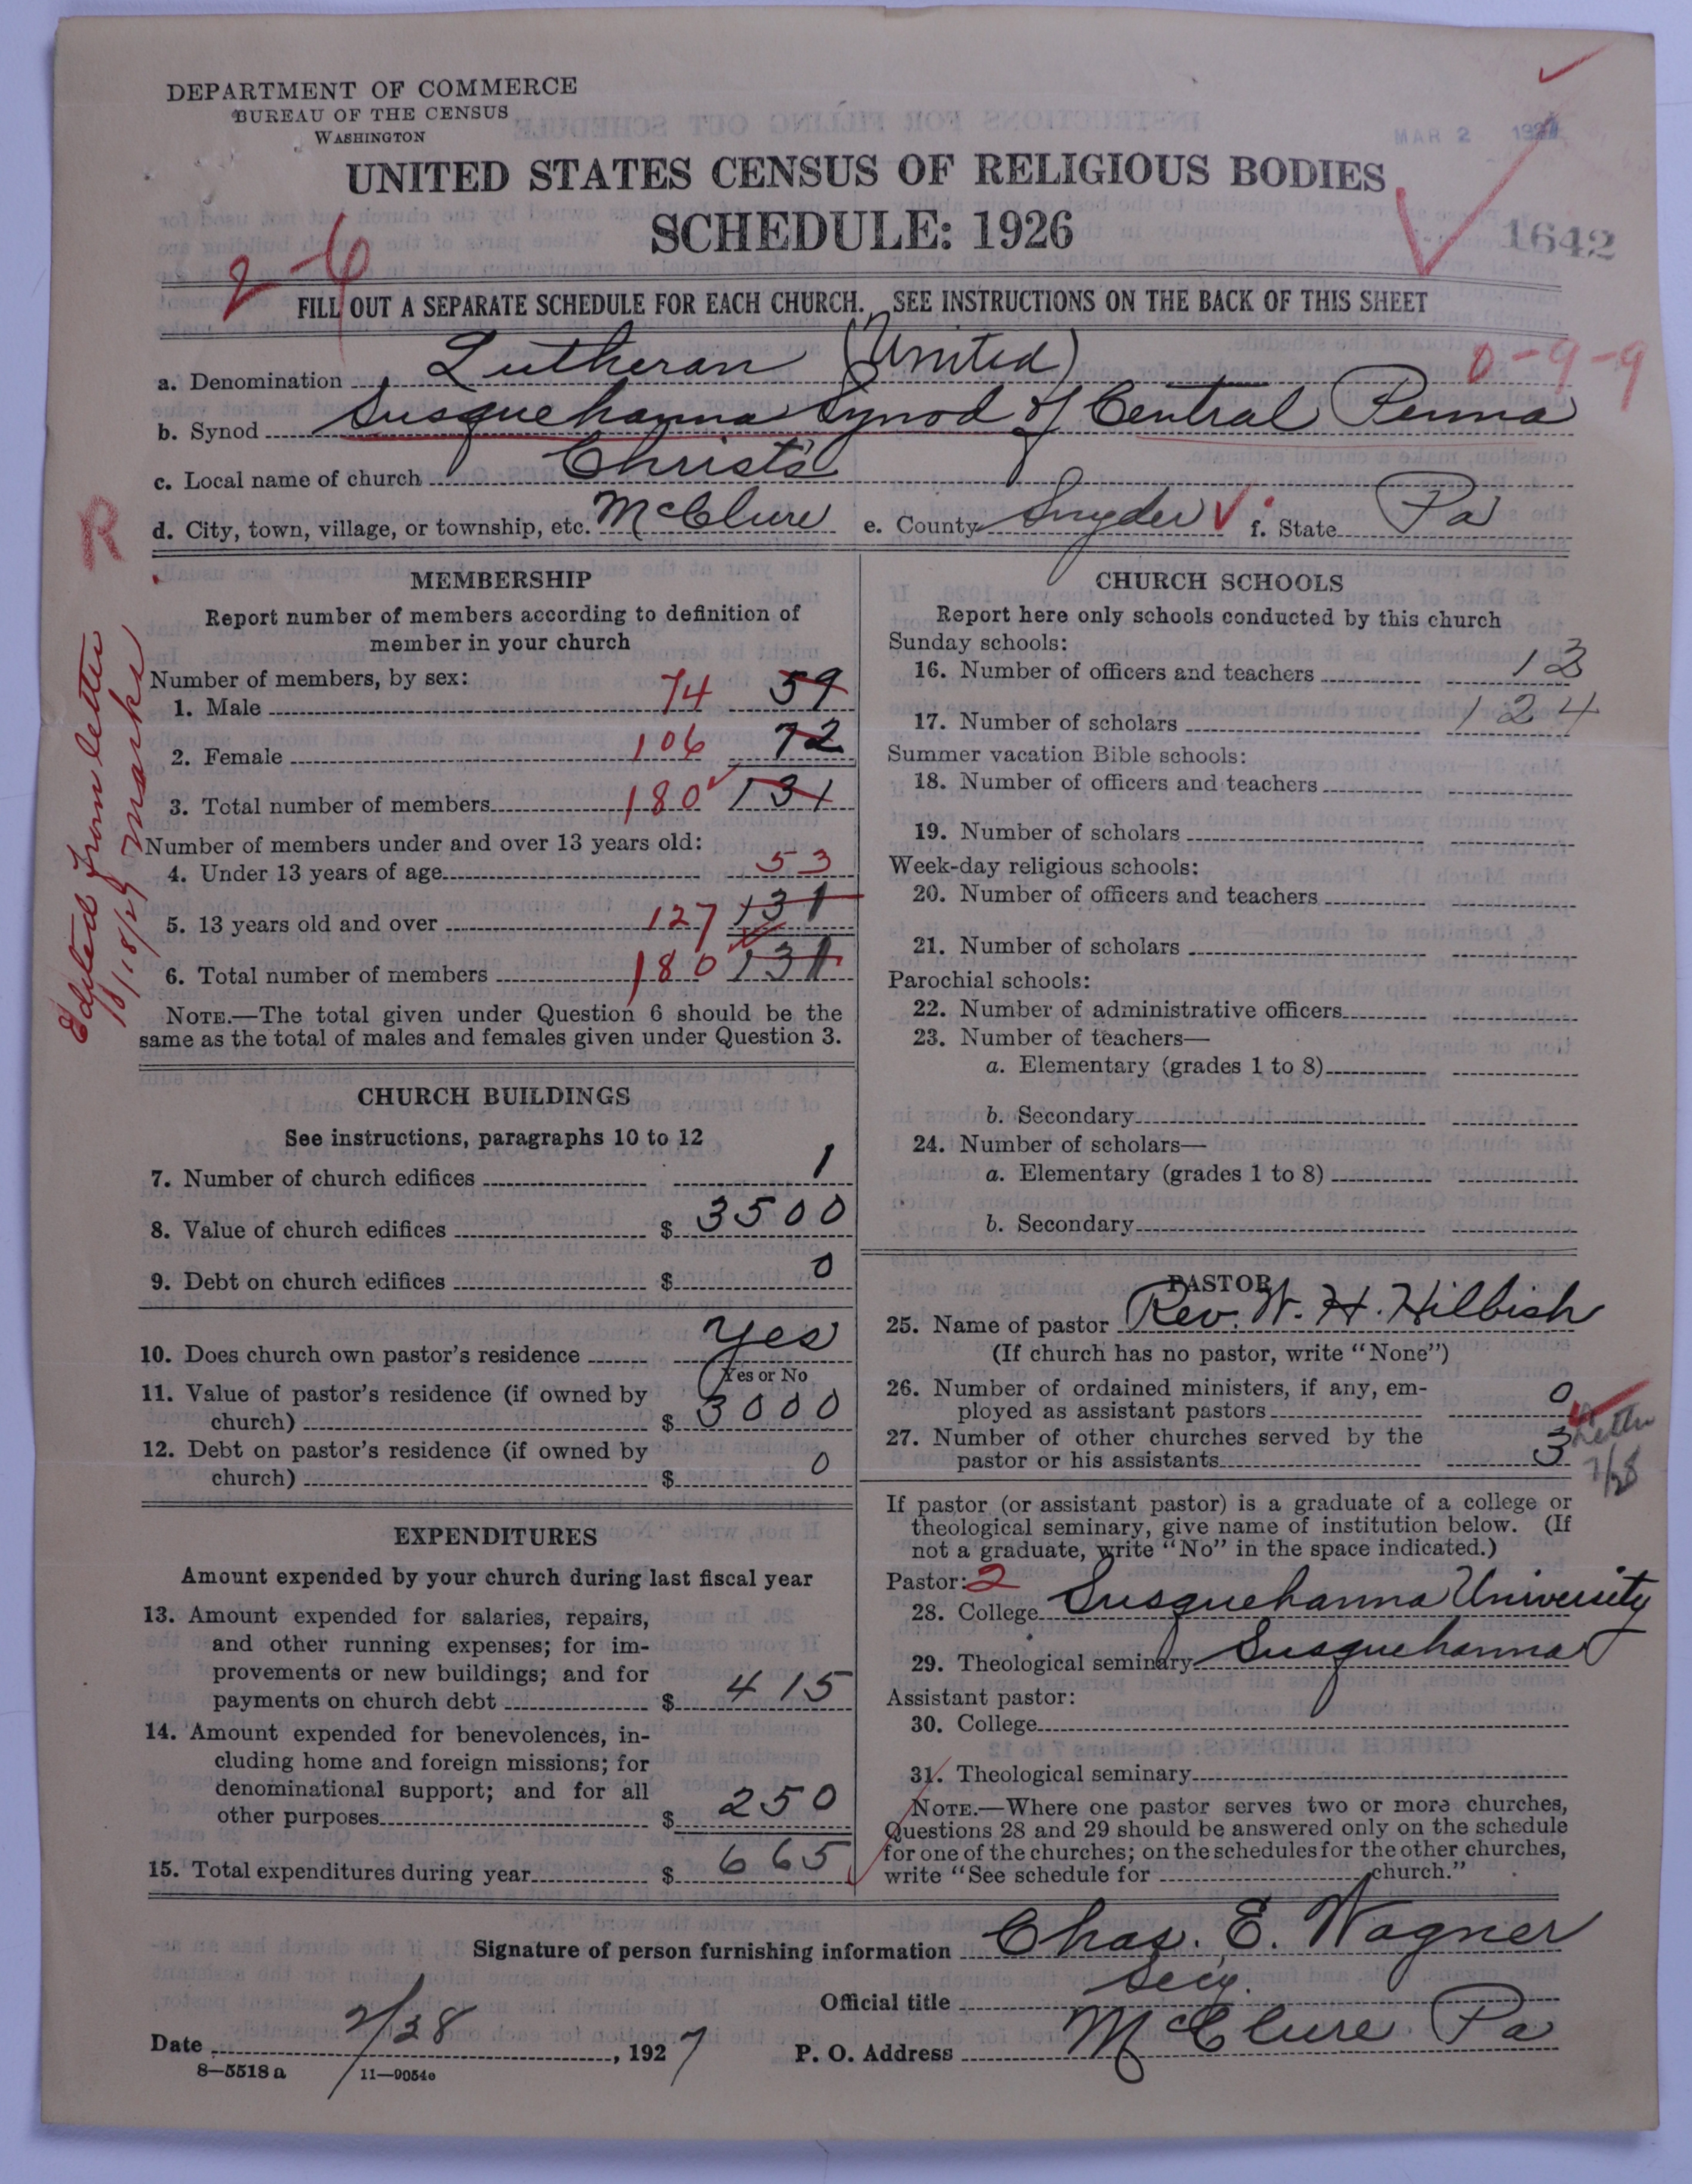 DEPARTMENT OF COMMERCE
BUREAU OF THE CENSUS
WASHINGTON
MAR 2 1927
UNITED STATES CENSUS OF RELIGIOUS BODIES
SCHEDULE: 1926
1642
2-6
FILL OUT A SEPARATE SCHEDULE FOR EACH CHURCH. SEE INSTRUCTIONS ON THE BACK OF THIS SHEET
a. Denomination Lutheran (United) 0-9-9
b. Synod Susquehanna Synod of Central Penna
c. Local name of church Christs
d. City, town, village, or township, etc. McClure e. County Snyder f. State Pa
R
Edited from letter
10/18/27 Marks
MEMBERSHIP
Report number of members according to definition of
member in your church
Number of members, by sex:
1. Male 74 59
2. Female 106 72
3. Total number of members 180 131
Number of members under and over 13 years old:
4. Under 13 years of age 53
5. 13 years old and over 127 131
6. Total number of members 180 131
NOTE.—The total given under Question 6 should be the
same as the total of males and females given under Question 3.
CHURCH BUILDINGS
See instructions, paragraphs 10 to 12
7. Number of church edifices 1
8. Value of church edifices $ 3500
9. Debt on church edifices $ 0
10. Does church own pastor's residence Yes
Yes or No
11. Value of pastor's residence (if owned by
church) $ 3000
12. Debt on pastor's residence (if owned by
church) $ 0
EXPENDITURES
Amount expended by your church during last fiscal year
13. Amount expended for salaries, repairs,
and other running expenses; for im-
provements or new buildings; and for
payments on church debt $ 415
14. Amount expended for benevolences, in-
cluding home and foreign missions; for
denominational support; and for all
other purposes $ 250
15. Total expenditures during year $ 665
CHURCH SCHOOLS
Report here only schools conducted by this church
Sunday schools:
16. Number of officers and teachers 13
17. Number of scholars 124
Summer vacation Bible schools:
18. Number of officers and teachers
19. Number of scholars
Week-day religious schools:
20. Number of officers and teachers
21. Number of scholars
Parochial schools:
22. Number of administrative officers
23. Number of teachers—
a. Elementary (grades 1 to 8)
b. Secondary
24. Number of scholars—
a. Elementary (grades 1 to 8)
b. Secondary
PASTOR
25. Name of pastor Rev. W. H. Hilbish
(If church has no pastor, write "None")
26. Number of ordained ministers, if any, em-
ployed as assistant pastors 0
27. Number of other churches served by the
pastor or his assistants 3 Letter
7/28
If pastor (or assistant pastor) is a graduate of a college or
theological seminary, give name of institution below. (If
not a graduate, write "No" in the space indicated.)
Pastor: 2
28. College Susquehanna University
29. Theological seminary Susquehanna
Assistant pastor:
30. College
31. Theological seminary
NOTE.—Where one pastor serves two or more churches,
Questions 28 and 29 should be answered only on the schedule
for one of the churches; on the schedules for the other churches,
write "See schedule for church."
Signature of person furnishing information Chas. E. Wagner
Official title Secy.
Date 2/28, 1927 P. O. Address McClure Pa
8—5518a 11—9054e